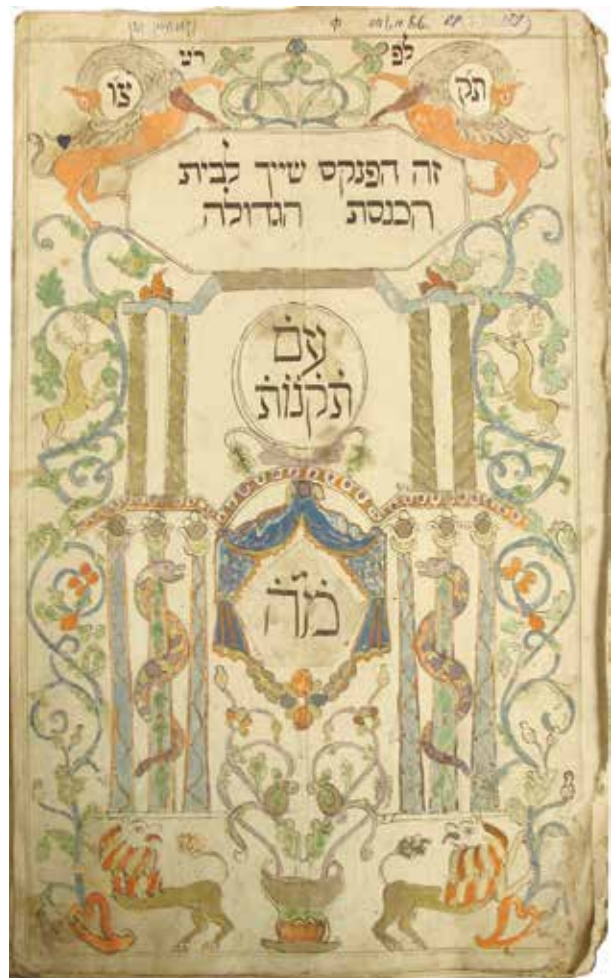 לפ
תק צו
זה הפנקס שייך לבית
הכנסת הגדולה
עם
תקנות
מה